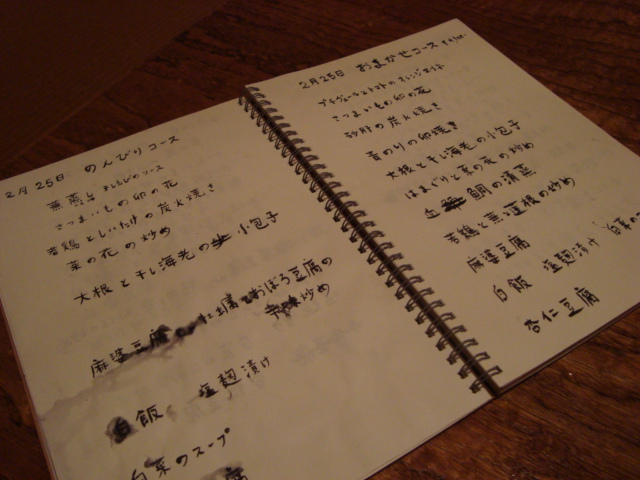 2月25日 のんびりコース
蕪蒸し 干しえびのソース
さつまいもの卵の花
若鶏としいたけの炭火焼き
菜の花の炒め
大根と干し海老の 小包子
麻婆豆腐 おぼろ豆腐の
炒め
白飯 塩麹漬け
白菜のスープ
腐
2月25日 おまかせコース
プチヴェールとトマトの
さつまいもの卵の花
砂肝の炭火焼き
青のりの卵焼き
大根と干し海老の小包子
はまぐりと菜の花の炒め
鯛の清蒸
若鶏と蓮根の炒め
麻婆豆腐
白飯 塩麹漬け 白菜の
杏仁豆腐